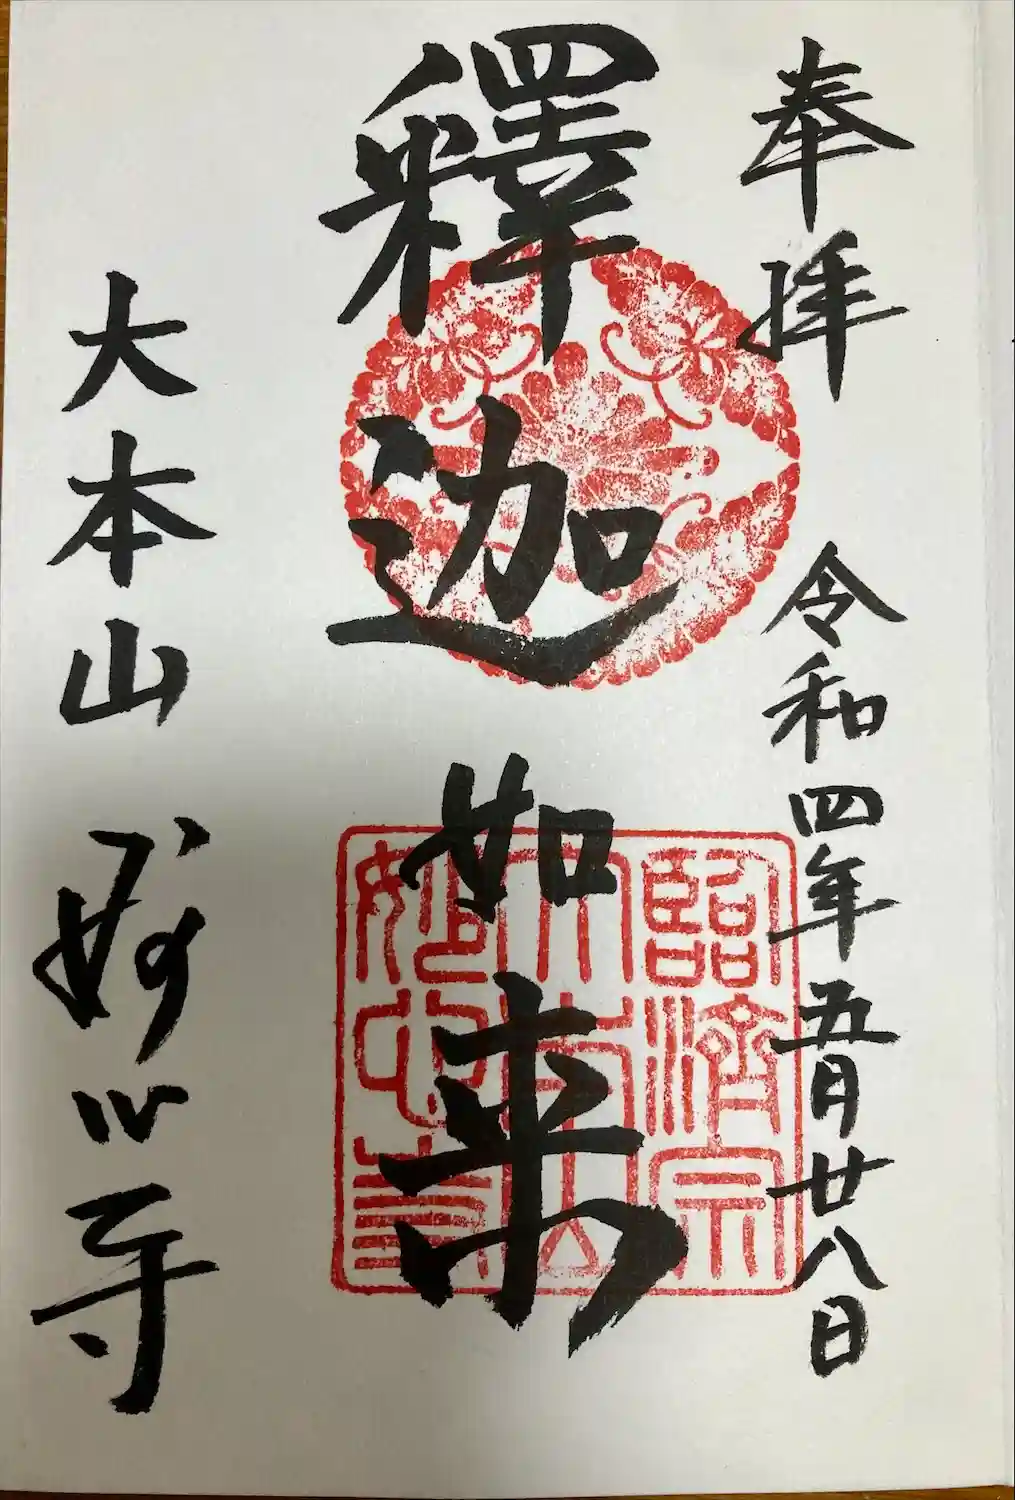 奉拝
令和四年五月廿八日
釋迦如来
臨済宗
大本山
妙心寺
大本山 妙心寺